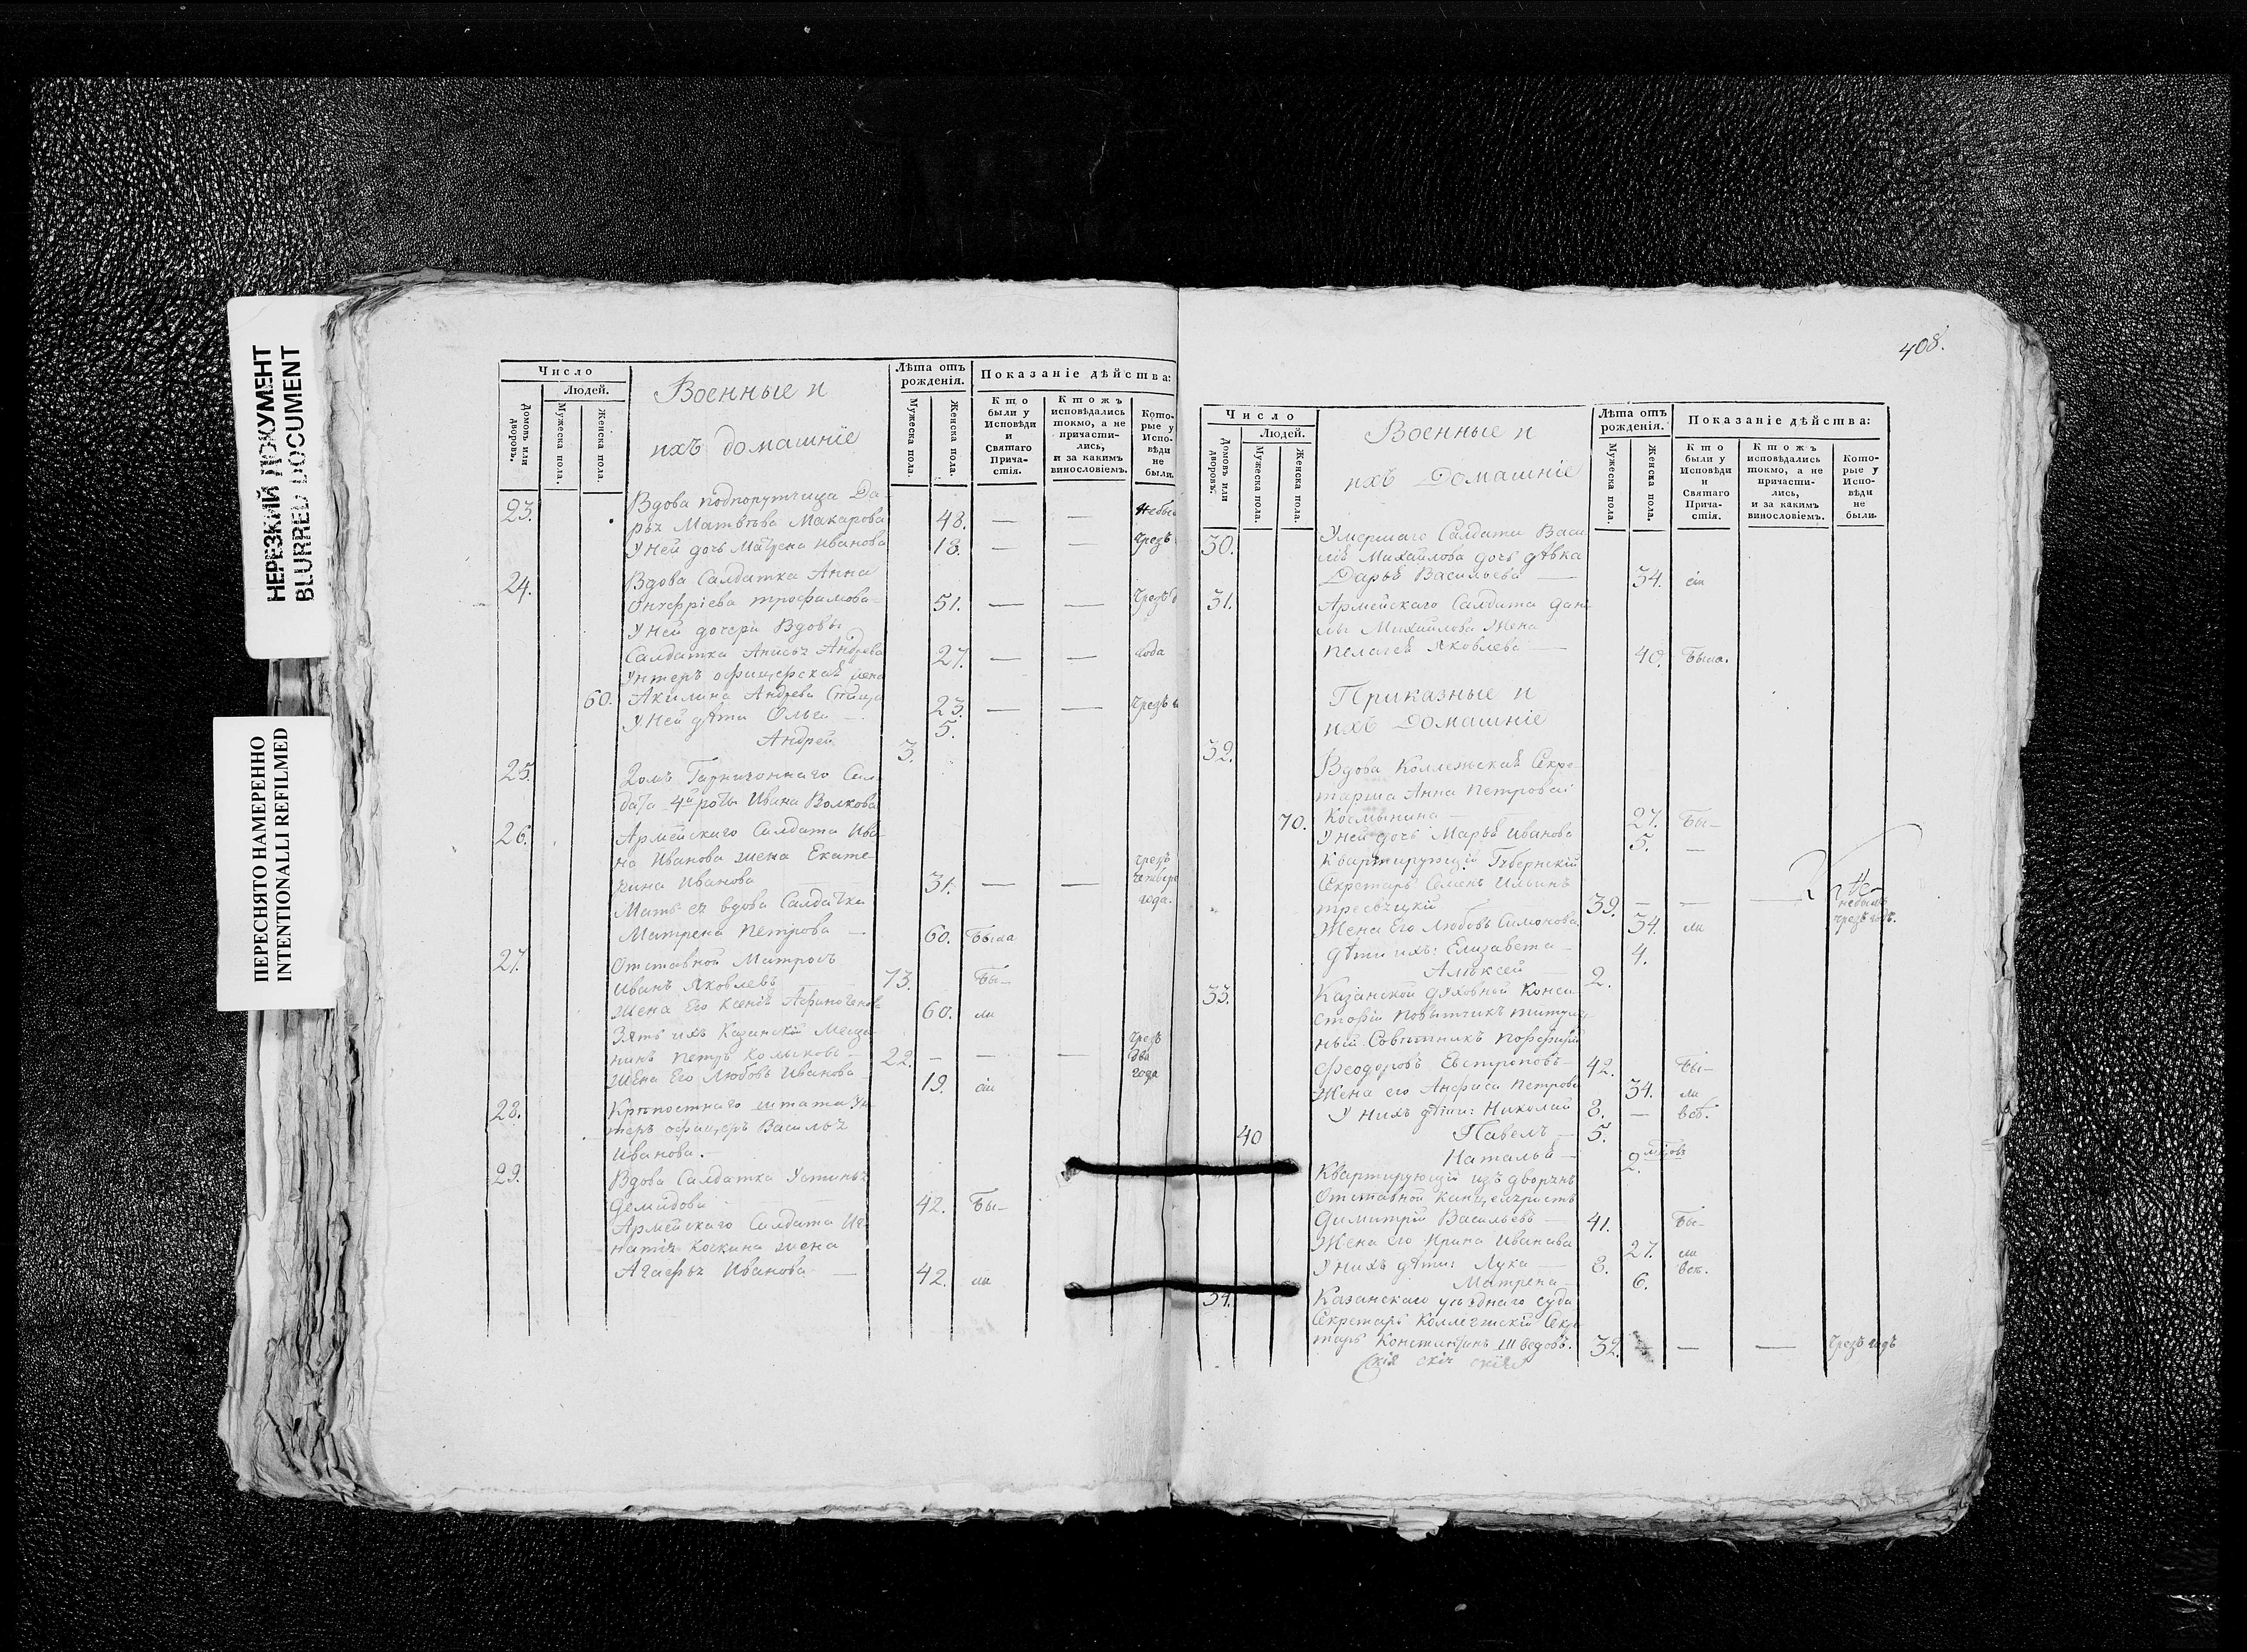 НЕРЕЗКИЙ ДОКУМЕНТ
BLURRED DOCUMENT
ПЕРЕСНЯТО НАМЕРЕННО
INTENTIONALLI REFILMED
Число
Людей.
Домовъ или дворовъ.
Мужеска пола.
Женска пола.
Военные и
ихъ домашніе
Лѣта отъ рожденія.
Мужеска пола.
Женска пола.
Показаніе дѣйства:
Кто были у Исповѣди и Святаго Причастія.
Ктожъ исповѣдались токмо, а не причастились, и за какимъ винословіемъ.
Которые у Исповѣди не были.
23. Вдова подпорутчица Да-
рья Матвѣева Макарова 48. — —
У ней дочь Матрена Иванова 18. — — чрезъ
24. Вдова Салдатка Анна
51. — — чрезъ
У ней дочери Вдовы
Салдатка Анисья Андрева 27. — — года
Унтеръ офицерская жена
60. Акилина Андрева 23. — — чрезъ
У ней дѣти Ольга — 5.
Андрей 3.
25. Домъ Гарнизоннаго Сал-
дата 4й роты Ивана Волкова
26. Армейскаго Салдата Ива-
на Иванова жена Екате- чрезъ
рина Иванова 31. — —
Мать ея вдова Салдатка года.
Матрена Петрова — 60. Была
27. Отставной Матросъ
Иванъ Яковлевъ 73. Бы-
Жена Его Ксенія 60. ли
Зять ихъ Казанскій Меща- чрезъ
нинъ Петръ — 22. — — — два
Жена Его Любовь Иванова 19. года
28. Крѣпостнаго штата Ун-
теръ офицеръ Василья
Иванова. —
29. Вдова Салдатка Устинья
Демидова 42. Бы-
Армейскаго Салдата Иг-
натія жена
Агафья Иванова — 42. ли
408.
Число
Людей.
Домовъ или дворовъ.
Мужеска пола.
Женска пола.
Военные и
ихъ Домашніе
Лѣта отъ рожденія.
Мужеска пола.
Женска пола.
Показаніе дѣйства:
Кто были у Исповѣди и Святаго Причастія.
Ктожъ исповѣдались токмо, а не причастились, и за какимъ винословіемъ.
Которые у Исповѣди не были.
30. Умершаго Салдата Васи-
лья Михайлова дочь дѣвка
Дарья Васильева — 34.
31. Армейскаго Салдата Дани-
лы Михайлова Жена
Пелагея Яковлева — 40. Была.
Приказные и
ихъ Домашніе
32. Вдова Коллежская Секре-
тарша Анна Петрова
70. Космынина — 27. Бы-
У ней дочь Марья Иванова 5. —
Квартирующій Губернскій
Секретарь Семенъ Ильинъ
39. — — —
Жена Его Любовь Симонова 34. ли чрезъ годъ.
Дѣти ихъ: Елизавета — 4.
Алексей — 2.
33. Казанской духовной Конси-
сторіи повытчикъ титуляр-
ный Совѣтникъ Порфирій
Феодоровъ Евстроповъ — 42. Бы-
Жена его Анфиса Петрова 34. ли
У нихъ дѣти: Николай 8. — всѣ.
40 Павелъ — 5.
Наталья — 2.
Квартирующій изъ дворянъ
Отставной канцеляристъ
Димитрій Васильевъ — 41. Бы-
Жена его Ирина Иванова 27. ли
У нихъ дѣти: Лука — 8. всѣ.
Матрена — 6.
34. Казанскаго уѣзднаго суда
Секретарь Коллежскій Секре-
тарь Константинъ Шведовъ. 32. — — чрезъ годъ